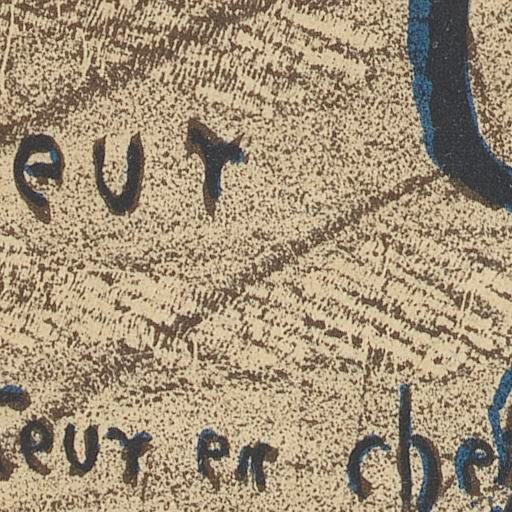 eur
teur en chef